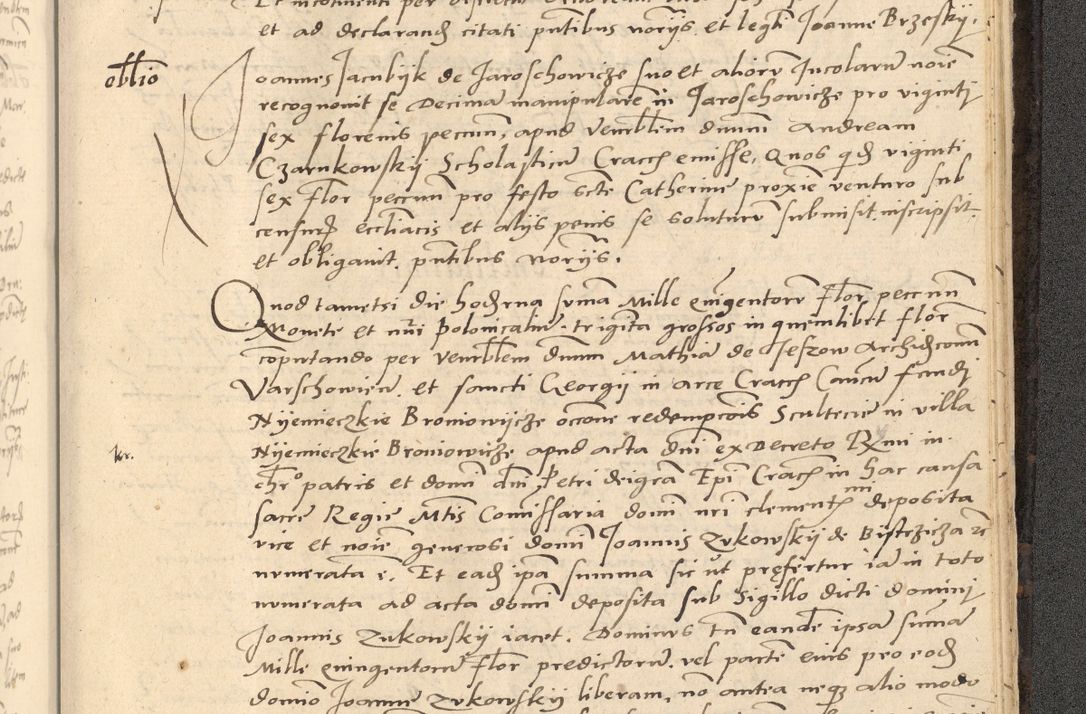 et ad declarand citati pntibus norijs et legti Joanne Brzeskij.
obltio
Joannes Jacubijk de Jaroschowicze suo et alioru Incolaru noie
recognouit se Decima manipulare in Jaroschowicze pro viginti
sex florenis pecun, apud venerblem dnum Andream
Czarnkowskij Scholasticu Craccn emisse, Quos qd viginti
sex flor peccun pro festo scte Catherine proxie venturo sub
censuris eccliacis et alijs penis se soluturu submisit inscripsit
et obligauit pntibus norijs.
Quod tametsi die hoderna suma Mille quingentoru flor peccun
Monete et nui Polonicaliu trigita grossos in quemlibet flor
coputando per venerblem dnum Mathia de Jefzow Archidiconu
Varschowien et sancti Georgij in arce Craccn Canicu fundi
Nijemieczkie Broniowijcze occone redempcois Scultecie in villa
Nijemieczkie Broniowicze apud acta dni ex Decreto Rmi in
kr.
chro patris et domi dni Petri dei gra Epi Craccn in hac causa
sacre Regie Mtis Comissaria domi nri clementmi deposita
vice et noie generosi domi Joannis Zukowskij de Bistrzicza re
numerata e. Et ead ipa summa sic ut prefertur ia in toto
numerata ad acta domi deposita sub Sigillo dicti domini
Joannis Zukowskij iacet. Dominus tn eande ipsa suma
Mille quingentoru flor predictoru vel parte eius pro eod
domio Joanne Zukowskij liberam, no antea neq alio modo